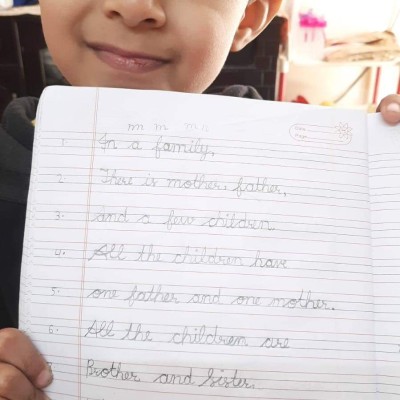 1. In a family,
2. There is mother, father,
3. and a few children
4. All the children have
5. one father and one mother.
6. All the children are
7. Brother and Sister.